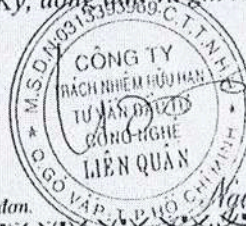 Ký, đóng
M.S.D.N:0313393989-C.T.T.N.H
CÔNG TY
TRÁCH NHIỆM HỮU HẠN
TƯ VẤN ĐẦU TƯ
CÔNG NGHỆ
LIÊN QUÂN
Q.GÒ VẤP-T.P HỒ CHÍ MINH
đơn.